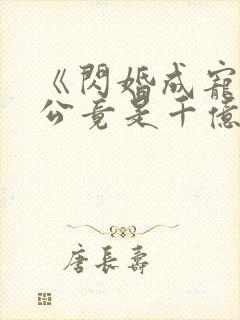 《閃婚成寵
公竟是千億
唐長壽